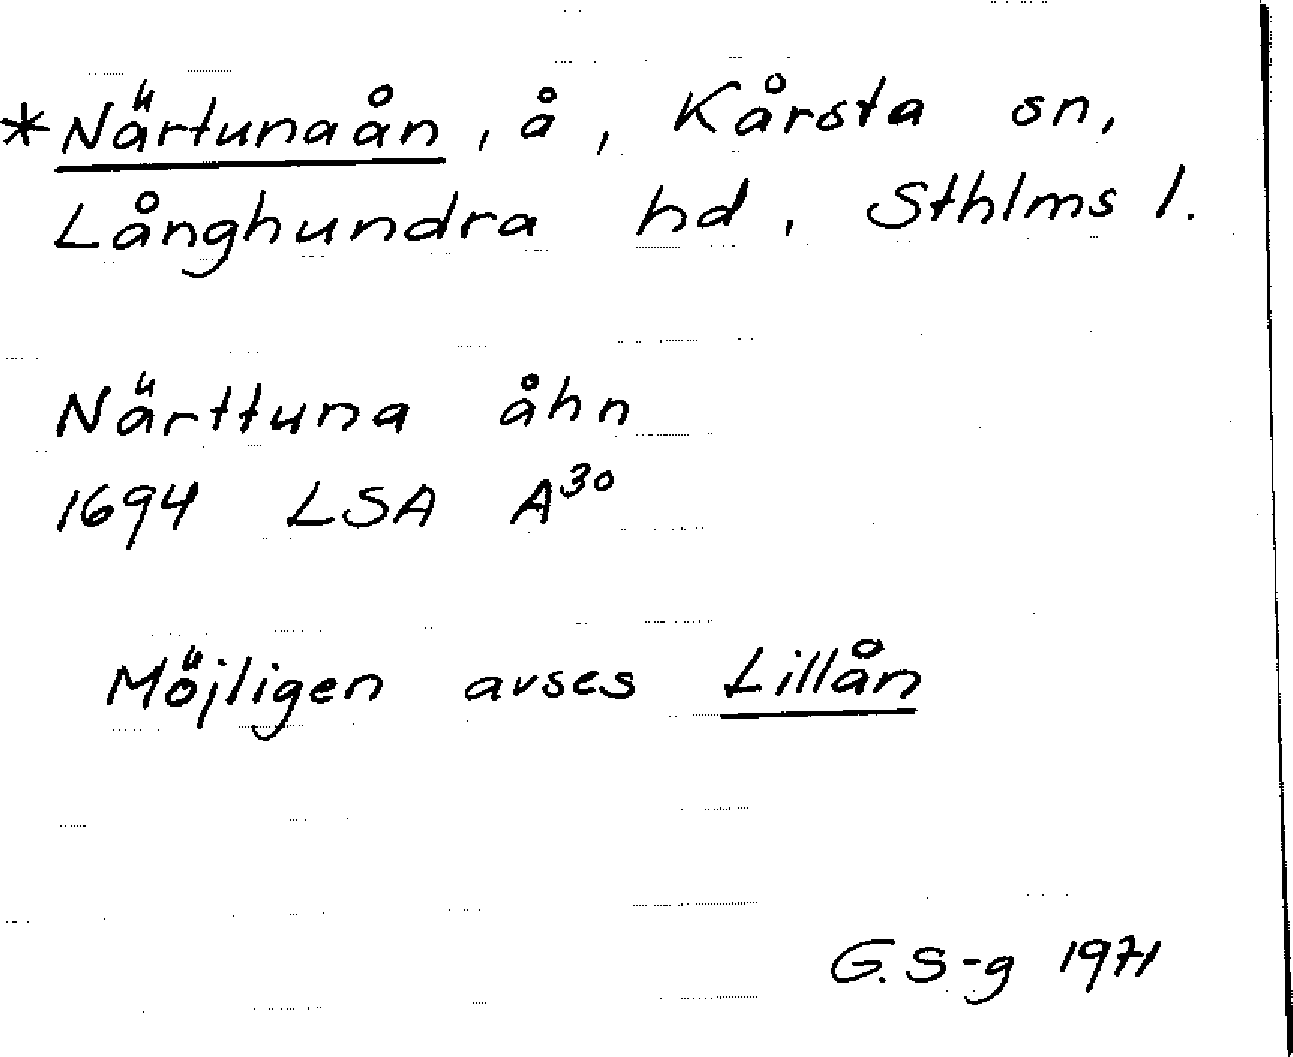 *Närtunaån, å, Kårsta sn,
Långhundra hd, Sthlms l.
Närttuna åhn
1694 LSA A³⁰
Möjligen avses Lillån
G. S-g 1971